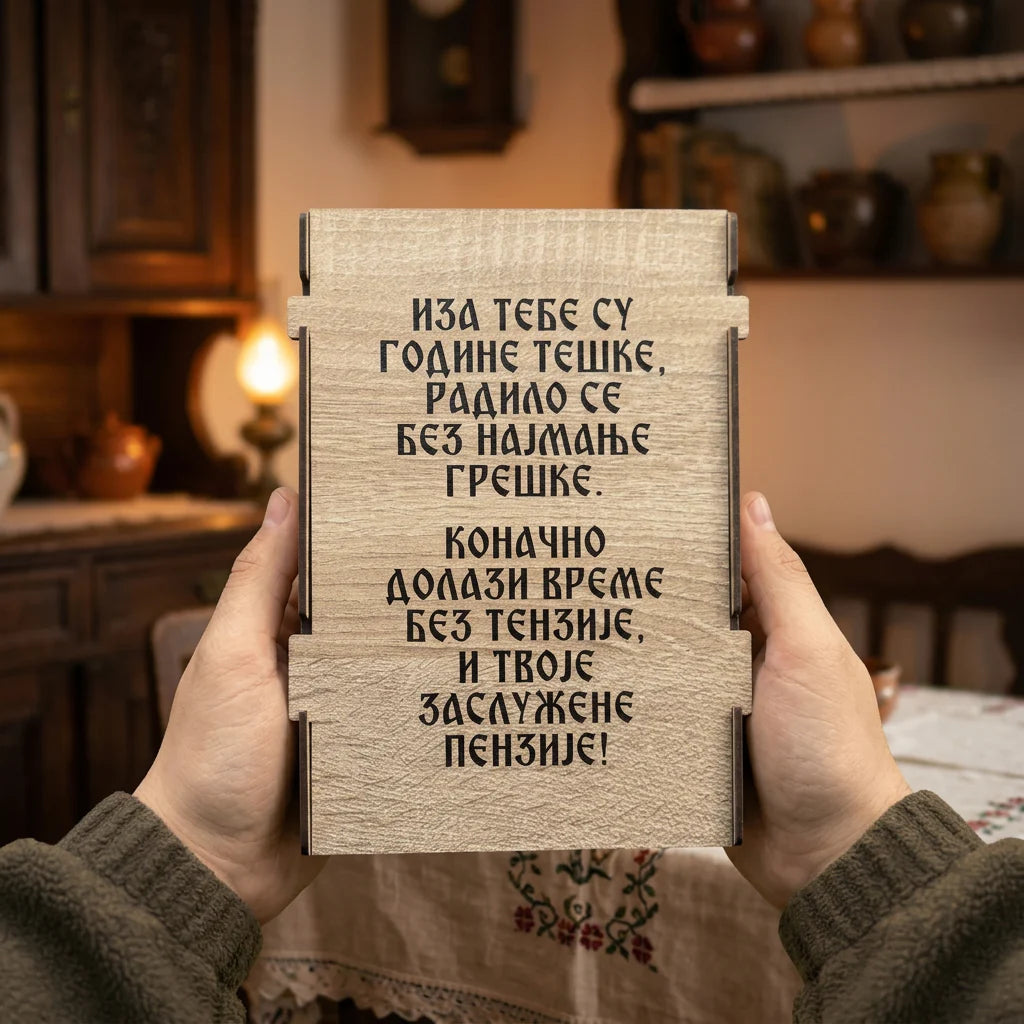 ИЗА ТЕБЕ СУ
ГОДИНЕ ТЕШКЕ,
РАДИЛО СЕ
БЕЗ НАЈМАЊЕ
ГРЕШКЕ.
КОНАЧНО
ДОЛАЗИ ВРЕМЕ
БЕЗ ТЕНЗИЈЕ,
И ТВОЈЕ
ЗАСЛУЖЕНЕ
ПЕНЗИЈЕ!